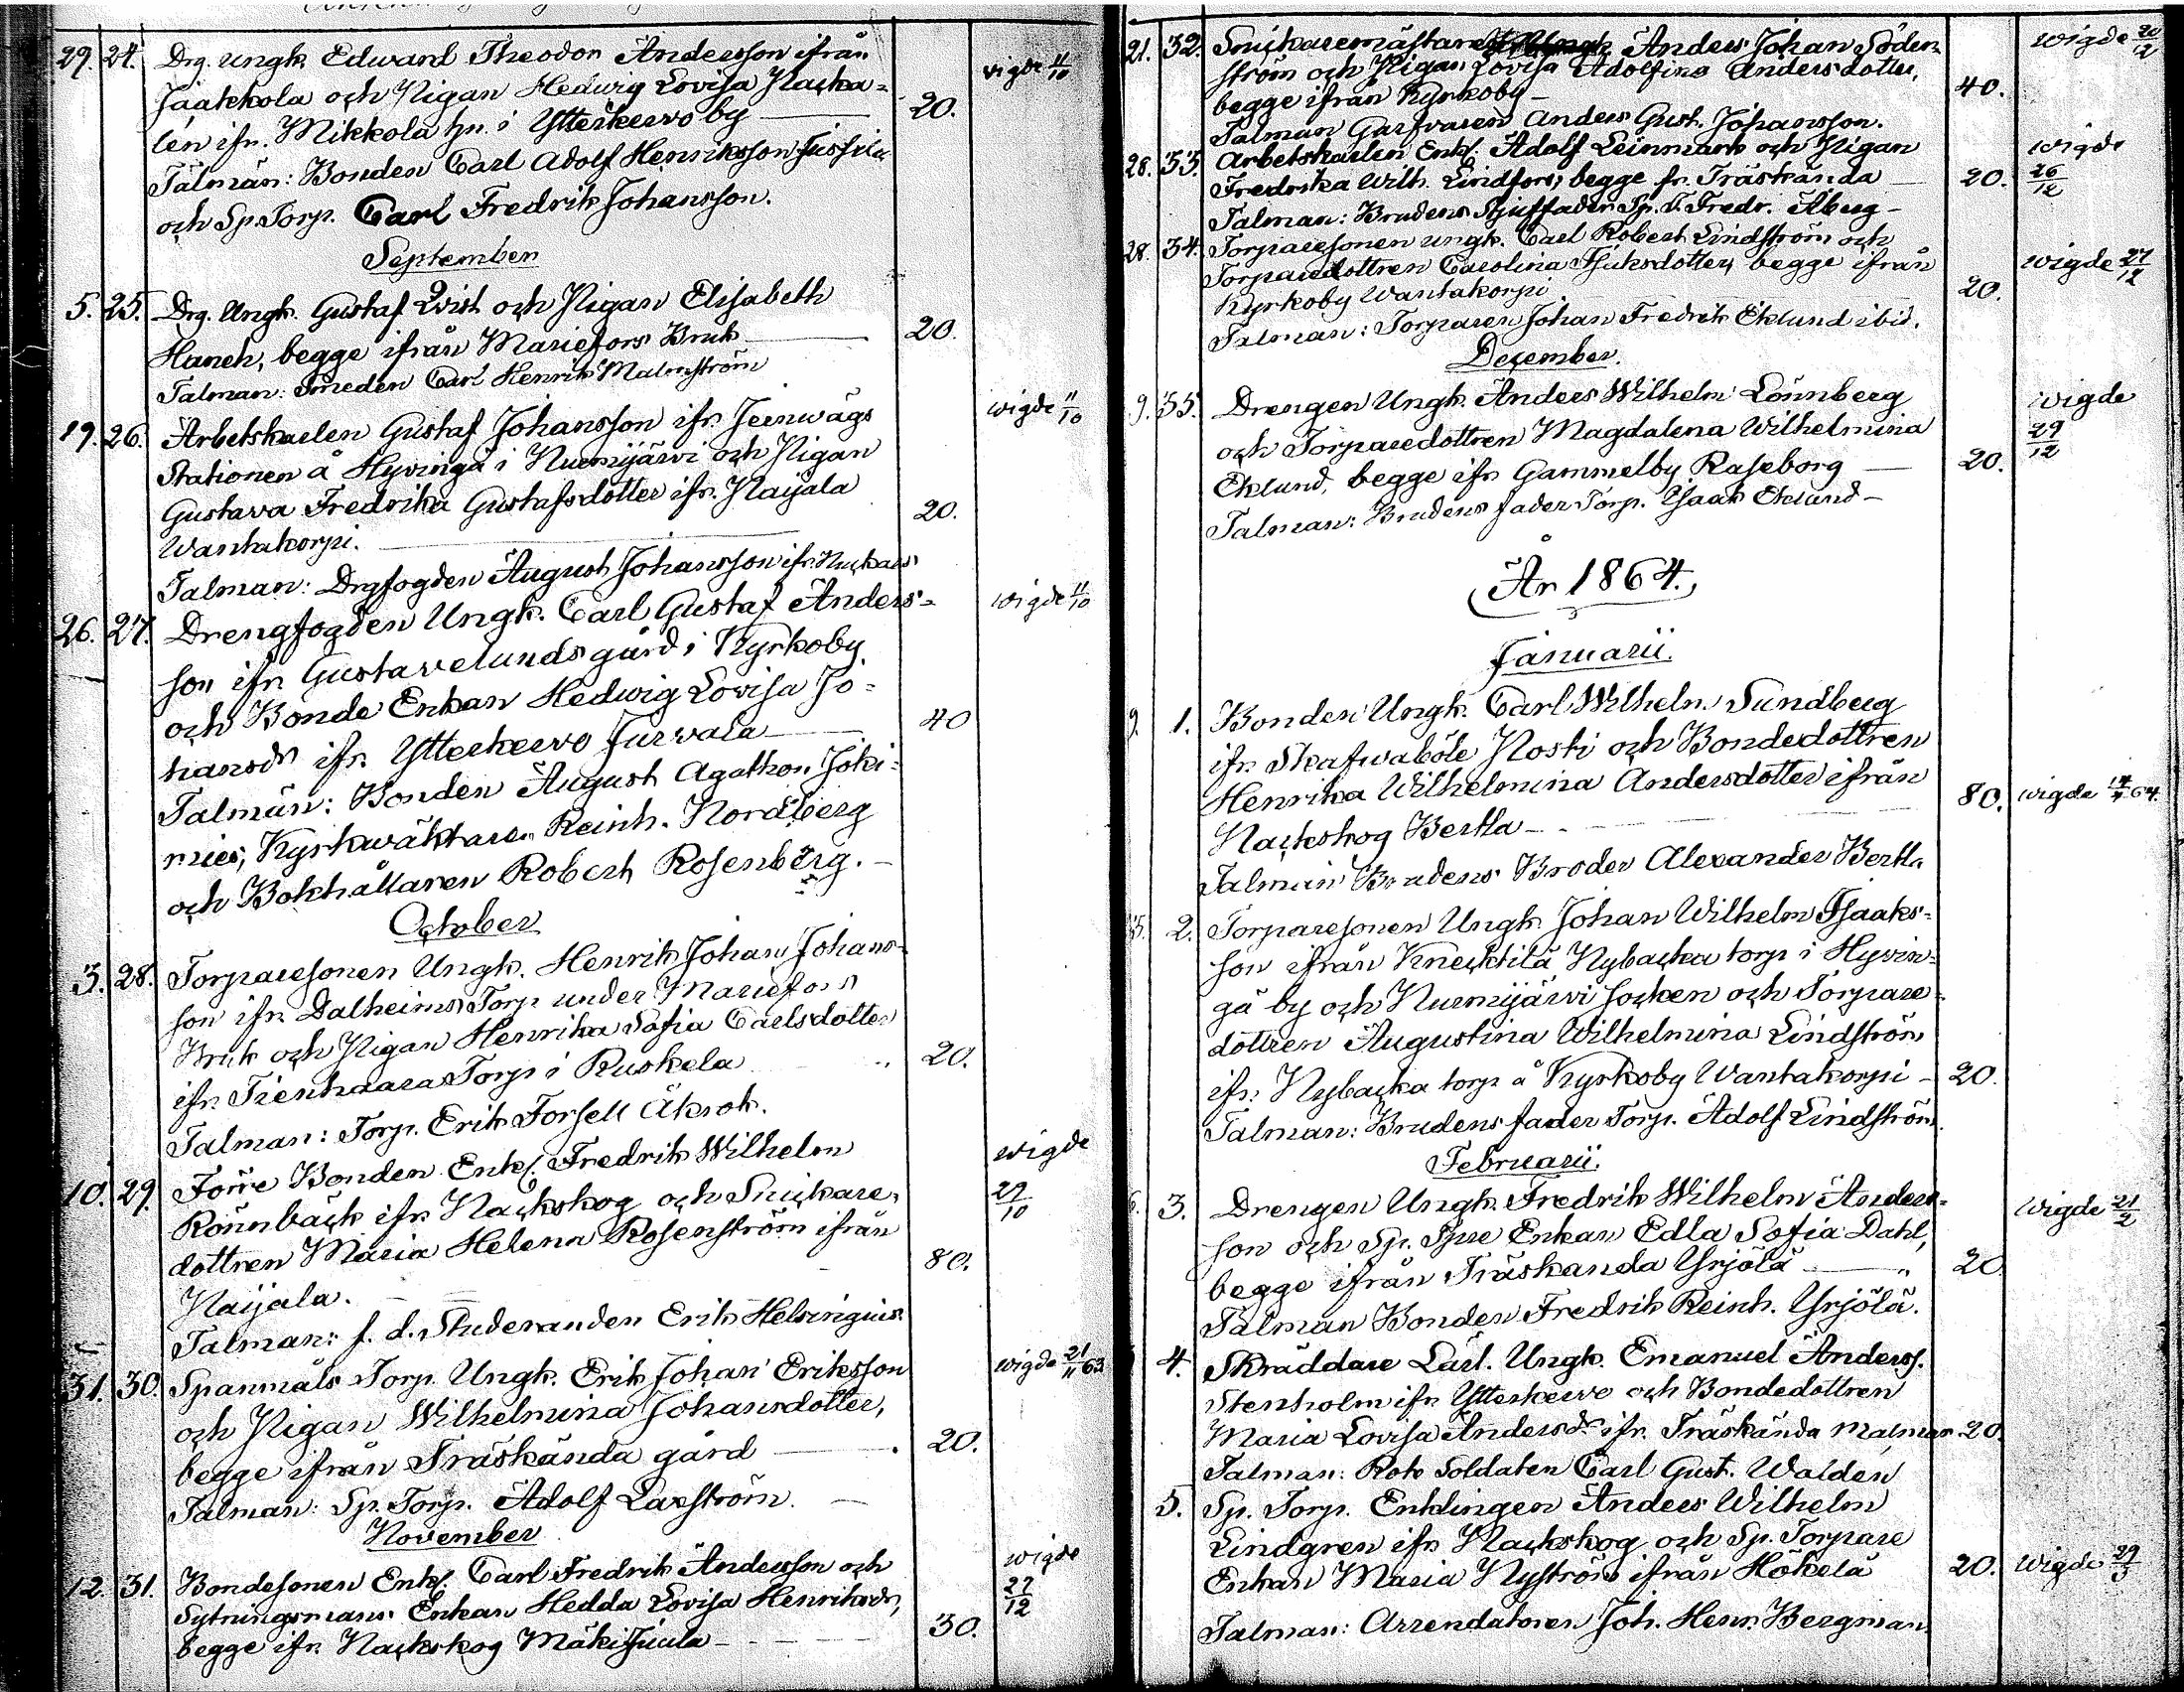 29. 24. Drg. Ungk. Edward Theodor Andersson ifrån wigde 11/10
Jaakkola och Pigan Hedwig Lovisa Nacka=
lén ifr. Mikkola hn. i Ytterkervo by 20.
Talmän: Bonden Carl Adolf Henriksson Jussila
och Sp. Torp. Carl Fredrik Johansson.
September
5. 25. Drg. Ungk. Gustaf Qvist och Pigan Elisabeth
Haneh, begge ifrån Mariefors Bruk 20.
Talman: Smeden Carl Henrik Malmström
19. 26. Arbetskarlen Gustaf Johansson ifr. Jernwägs wigde 11/10
Stationen å Hyvingä i Nurmijärvi och Pigan
Gustava Fredrika Gustafsdotter ifr. Paijala
Wantakorpi. 20.
Talman: Drgfogden August Johansson ifr. Nuckars
26. 27. Drengfogden Ungk. Carl Gustaf Anders= wigde 11/10
son ifr. Gustavelunds gård i Kyrkoby
och Bonde Enkan Hedwig Lovisa Jo=
hansdr ifr. Ytterkervo Jurvala 40
Talmän: Bonden August Agathon Joki=
mies, Kyrkwäktaren Reinh. Nordberg
och Bokhållaren Robert Rosenberg.
October
3. 28. Torparesonen Ungk. Henrik Johan Johans=
son ifr. Dalheims Torp under Mariefors
Bruk och Pigan Henrika Sofia Carlsdotter
ifr. Tienhaara Torp i Ruskela 20.
Talman: Torp. Erik Forsell Åkrok.
10. 29. Förre Bonden Enkl. Fredrik Wilhelm wigde
Rönnbäck ifr. Nackskog och Snickare= 29/10
dottren Maria Helena Rosenström ifrån
Paijala. 80.
Talman: f. d. Studeranden Erik Helsingius.
31. 30. Spanmåls Torp. Ungk. Erik Johan Eriksson wigde 21/11 63
och Pigan Wilhelmina Johansdotter,
begge ifrån Träskända gård 20.
Talman: Sp. Torp. Adolf Laxström.
November
12. 31. Bondesonen Enkl. Carl Fredrik Andersson och wigde
Sytningsmans Enkan Hedda Lovisa Henriksdr, 27/12
begge ifr. Nackskog Mäki Juula 30.
21. 32. Snickaremästaren Anders Johan Söder= wigde 20/12
ström och Pigan Lovisa Adolfina Andersdotter,
begge ifrån Kyrkoby 40.
Talman Garfvaren Anders Gust. Johansson.
28. 33. Arbetskarlen Enkl. Adolf Leinmark och Pigan wigde
Fredrika Wilh. Lindfors, begge fr. Träskända 20. 26/12
Talman: Brudens Stjuffader Sp. T. Fredr. Åberg
28. 34. Torparesonen Ungk. Carl Robert Lindström och
Torparedottren Carolina Isaksdotter, begge ifrån wigde 27/12
Kyrkoby Wantakorpi 20.
Talman: Torparen Johan Fredrik Eklund ibid.
December.
9. 35. Drengen Ungk. Anders Wilhelm Lönnberg wigde
och Torparedottren Magdalena Wilhelmina 29/12
Eklund, begge ifr. Gammelby Raseborg 20.
Talman: Brudens fader Torp. Isaak Eklund
År 1864.
Januarii.
9. 1. Bonden Ungk. Carl Wilhelm Sundberg
ifr. Skafwaböle Noski och Bondedottren
Henrika Wilhelmina Andersdotter ifrån
Nackskog Bertla 80. wigde 64.
Talman Brudens Broder Alexander Bertla
2. Torparesonen Ungk. Johan Wilhelm Isaaks=
son ifrån Knecktilä Nybacka torp i Hyvin=
gä by och Nurmijärvi socken och Torpare=
dottren Augustina Wilhelmina Lindström
ifr. Nybacka torp å Kyrkoby Wantakorpi 20.
Talman: Brudens fader Torp. Adolf Lindström.
Februarii.
6. 3. Drengen Ungk. Fredrik Wilhelm Anders= wigde 21/2
son och Sp. Tpre Enkan Edla Sofia Dahl,
begge ifrån Träskända Yrjölä 20.
Talman Bonden Fredrik Reinh. Yrjölä.
4. Skräddare Lärl. Ungk. Emanuel Anderss.
Stenholm ifr. Ytterkervo och Bondedottren
Maria Lovisa Andersdr ifr. Träskända Malmar 20.
Talman: Rote Soldaten Carl Gust. Walden
5. Sp. Torp. Enklingen Anders Wilhelm
Lindgren ifr. Nackskog och Sp. Torpare
Enkan Maria Nyström ifrån Hökelä 20. wigde 29/3
Talman: Arrendatoren Joh. Henr. Bergman.